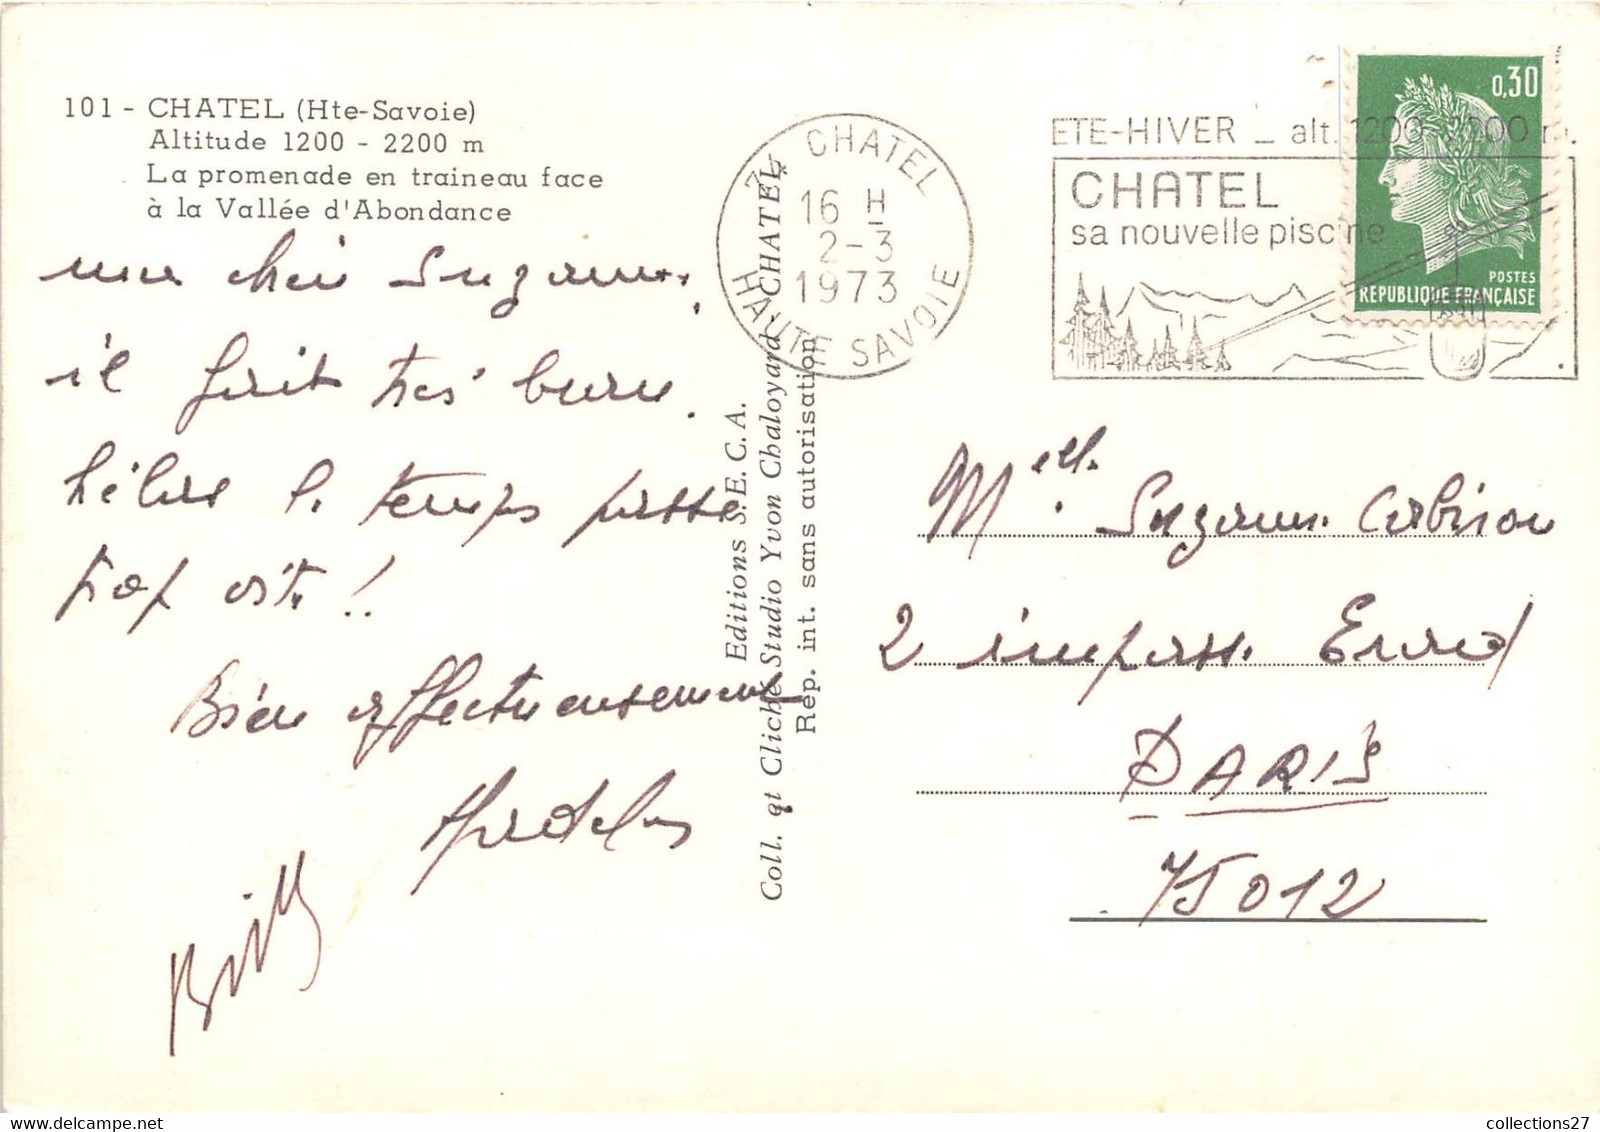 101 - CHATEL (Hte-Savoie)
Altitude 1200 - 2200 m
La promenade en traineau face
à la Vallée d'Abondance
ma chère Suzanne,
il fait très beau.
hélas le temps passe
trop vite !!
Bien affectueusement
Billy
Editions S.E.C.A.
Coll. et Cliché Studio Yvon Chaloyard CHATEL
Rep. int. sans autorisation
74 CHATEL
16 H
2-3
1973
HTE HAUTE SAVOIE
ETE-HIVER _ alt. 1200-2200 m.
CHATEL
sa nouvelle piscine
0,30
POSTES
REPUBLIQUE FRANÇAISE
Melle. Suzanne
2 impasse Erard
PARIS
75012
collections27